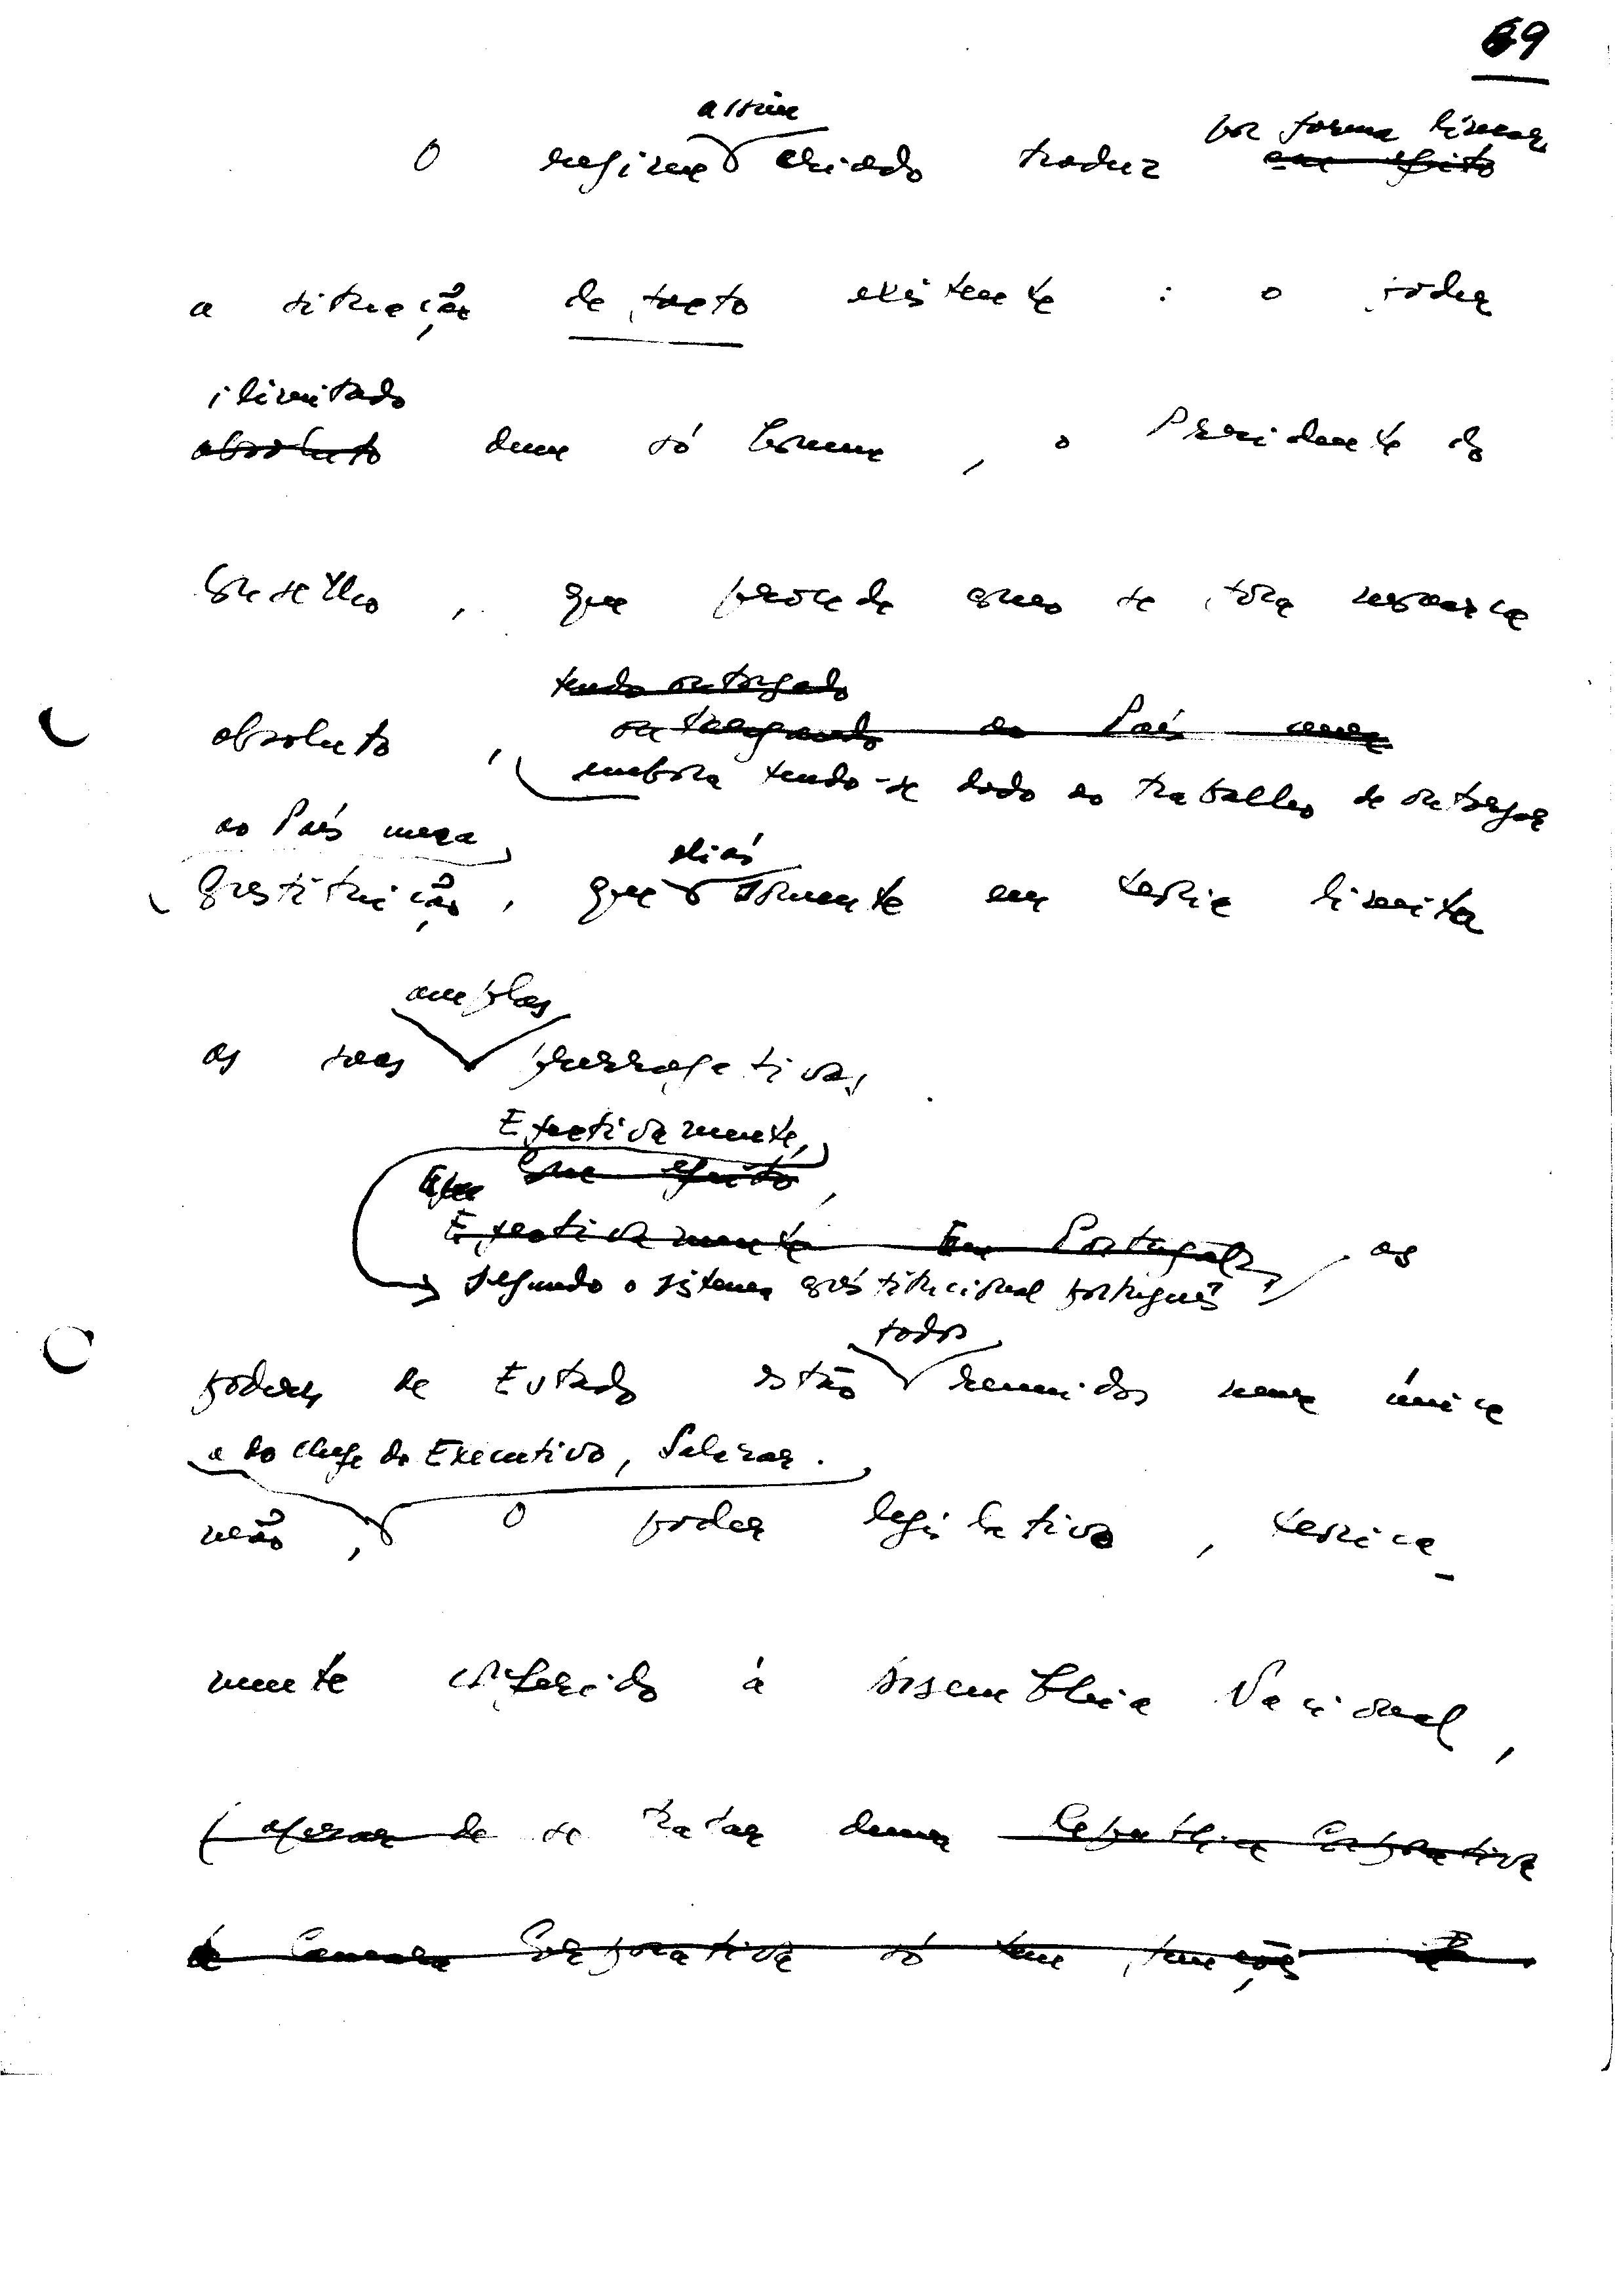 69
assim por forma linear
O regime criado traduz em efeito
a situação de facto existente : o poder
ilimitado
absoluto dum só homem , o Presidente do
Conselho , que procede como se fôra monarca
tendo outorgado
absoluto , outorgando ao País uma
embora tendo-se dado ao trabalho de outorgar
ao País uma aliás
Constituição , que sòmente em teoria limita
amplas
as suas prerrogativas .
Efectivamente,
Com efeito ,
Efectivamente Em Portugal , as
segundo o sistema constitucional português ,
todos
poderes de Estado estão reunidos numa única
a do chefe do Executivo, Salazar .
mão , O poder legislativo , teorica-
mente conferido à Assembleia Nacional ,
( apesar de se tratar duma República Corporativa
a Camara Corporativa só tem funções